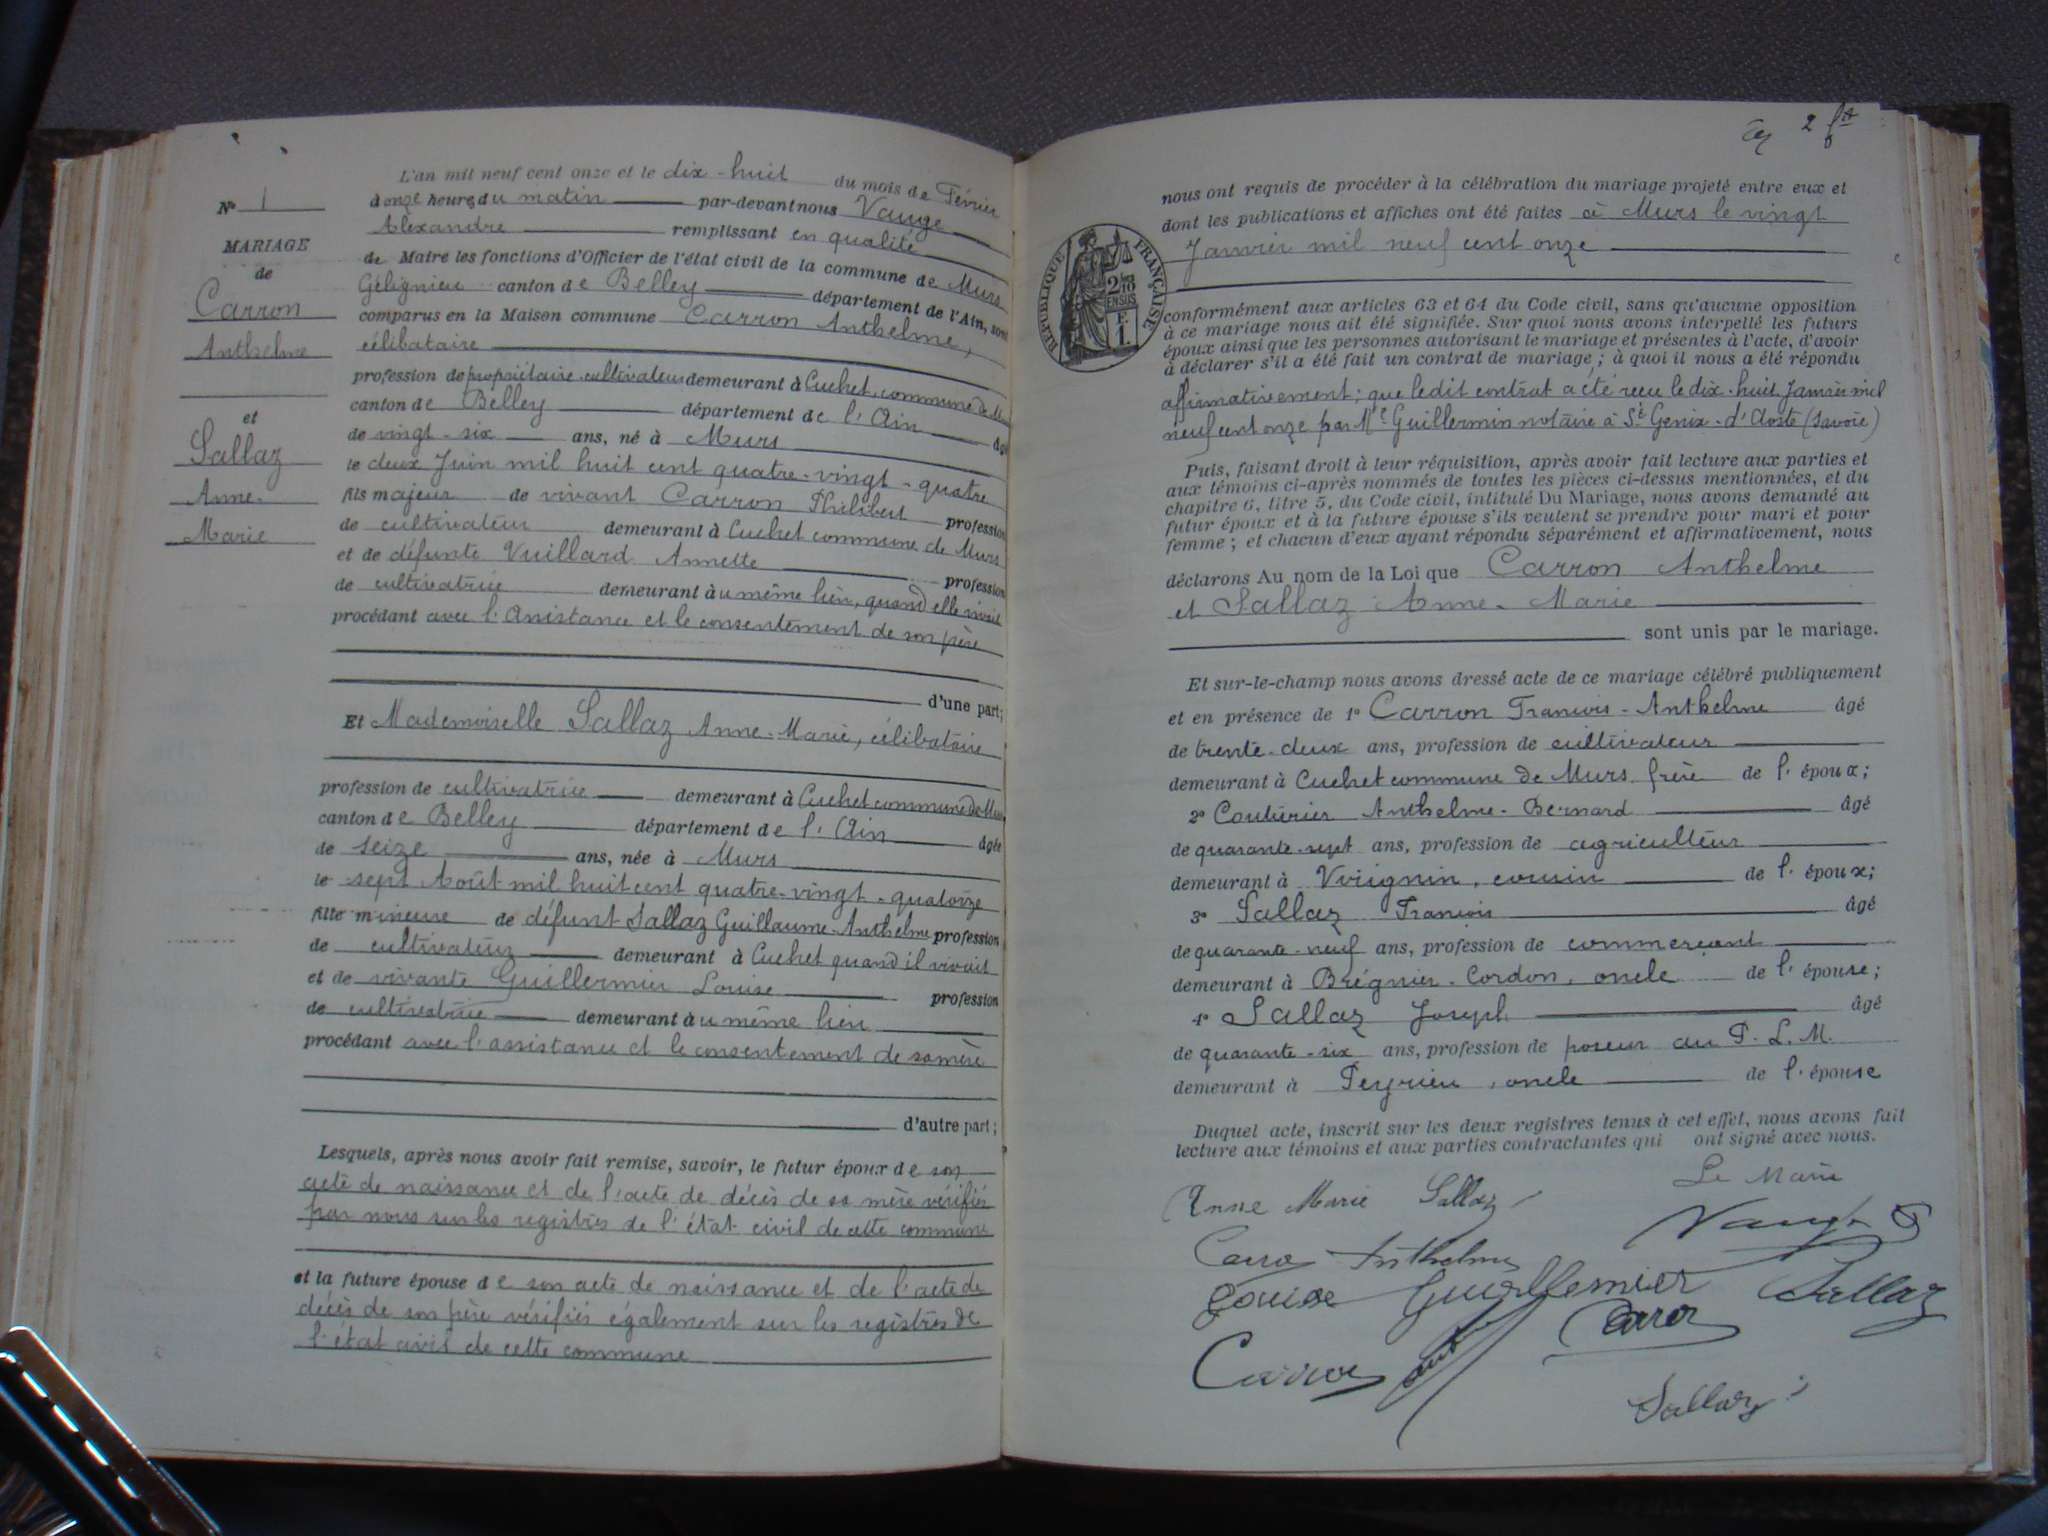 L'an mil neuf cent onze et le dix-huit du mois de Février
à onze heures du matin par-devant nous Vauge
Alexandre remplissant en qualité
de Maire les fonctions d'Officier de l'état civil de la commune de Murs
Gélignieu canton de Belley département de l'Ain, sont
comparus en la Maison commune Carron Anthelme,
célibataire
profession de propriétaire-cultivateur demeurant à Cuchet, commune de Murs
canton de Belley département de l'Ain âgé
de vingt-six ans, né à Murs
le deux Juin mil huit cent quatre-vingt-quatre
fils majeur de vivant Carron Philibert profession
de cultivateur demeurant à Cuchet commune de Murs
et de défunte Vuillard Annette profession
de cultivatrice demeurant au même lieu, quand elle vivait
procédant avec l'assistance et le consentement de son père
d'une part;
Et Mademoiselle Sallaz Anne-Marie, célibataire
profession de cultivatrice demeurant à Cuchet commune de Murs
canton de Belley département de l'Ain âgée
de seize ans, née à Murs
le sept Août mil huit cent quatre-vingt-quatorze
fille mineure de défunt Sallaz Guillaume-Anthelme profession
de cultivateur demeurant à Cuchet quand il vivait
et de vivante Guillermier Louise profession
de cultivatrice demeurant au même lieu
procédant avec l'assistance et le consentement de sa mère
d'autre part;
Lesquels, après nous avoir fait remise, savoir, le futur époux de son
acte de naissance et de l'acte de décès de sa mère vérifiés
par nous sur les registres de l'état civil de cette commune
et la future épouse de son acte de naissance et de l'acte de
décès de son père vérifiés également sur les registres de
l'état civil de cette commune
N° 1
MARIAGE
de
Carron
Anthelme
et
Sallaz
Anne-
Marie
2
nous ont requis de procéder à la célébration du mariage projeté entre eux et
dont les publications et affiches ont été faites à Murs le vingt
Janvier mil neuf cent onze
RÉPUBLIQUE FRANÇAISE
2/10
EN SUS
F.
1.
conformément aux articles 63 et 64 du Code civil, sans qu'aucune opposition
à ce mariage nous ait été signifiée. Sur quoi nous avons interpellé les futurs
époux ainsi que les personnes autorisant le mariage et présentes à l'acte, d'avoir
à déclarer s'il a été fait un contrat de mariage; à quoi il nous a été répondu
affirmativement; que le dit contrat a été reçu le dix-huit Janvier mil
neuf cent onze par Me Guillermin notaire à St Genix-d'Aoste (Savoie)
Puis, faisant droit à leur réquisition, après avoir fait lecture aux parties et
aux témoins ci-après nommés de toutes les pièces ci-dessus mentionnées, et du
chapitre 6, titre 5, du Code civil, intitulé Du Mariage, nous avons demandé au
futur époux et à la future épouse s'ils veulent se prendre pour mari et pour
femme; et chacun d'eux ayant répondu séparément et affirmativement, nous
déclarons Au nom de la Loi que Carron Anthelme
et Sallaz Anne-Marie
sont unis par le mariage.
Et sur-le-champ nous avons dressé acte de ce mariage célébré publiquement
et en présence de 1° Carron François-Anthelme âgé
de trente-deux ans, profession de cultivateur
demeurant à Cuchet commune de Murs frère de l'époux;
2° Couturier Anthelme-Bernard âgé
de quarante-sept ans, profession de agriculteur
demeurant à Virignin, cousin de l'époux;
3° Sallaz François âgé
de quarante-neuf ans, profession de commerçant
demeurant à Brégnier-Cordon, oncle de l'épouse;
4° Sallaz Joseph âgé
de quarante-six ans, profession de poseur au P.L.M.
demeurant à Peyrieu, oncle de l'épouse
Duquel acte, inscrit sur les deux registres tenus à cet effet, nous avons fait
lecture aux témoins et aux parties contractantes qui ont signé avec nous.
Le Maire
Anne Marie Sallaz
Vauge
Carron Anthelme
Louise Guillermier Sallaz
Carron
Carron
Sallaz